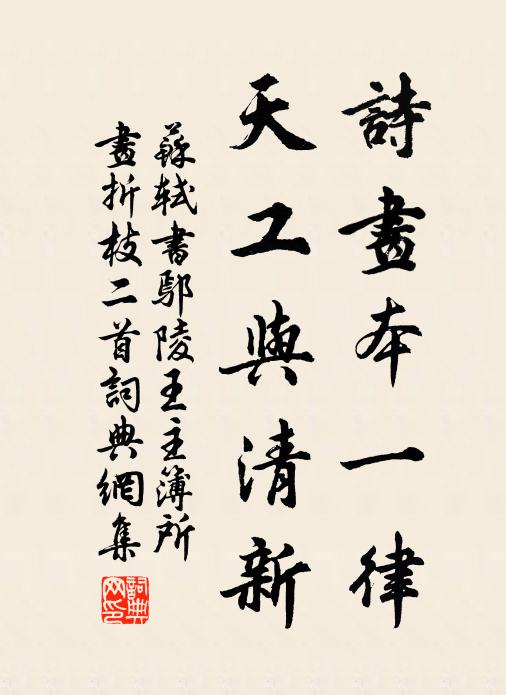 詩畫本一律
天工與清新
蘇軾書鄢陵王主簿所
畫折枝二首詞典網集
詞典網印